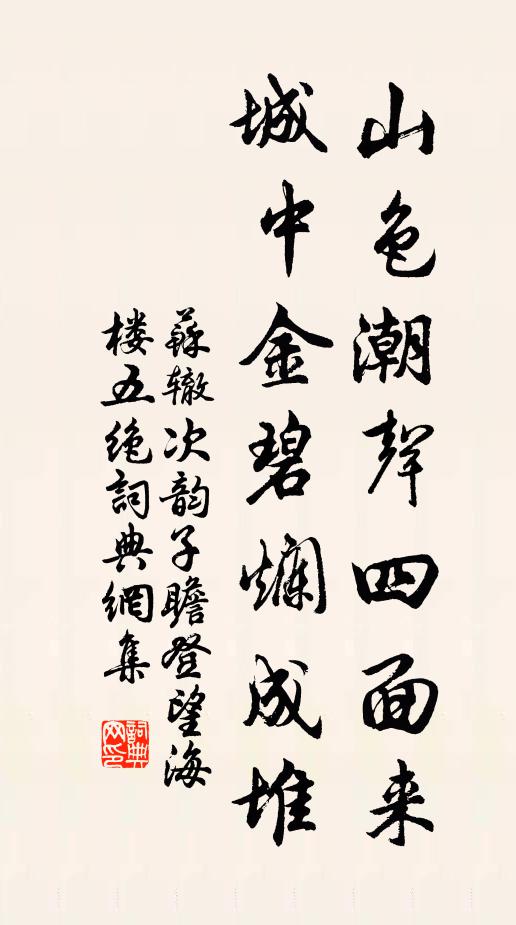 山色潮聲四面来
城中金碧爛成堆
蘇辙次韵子瞻登望海
楼五绝詞典網集
詞典
网印